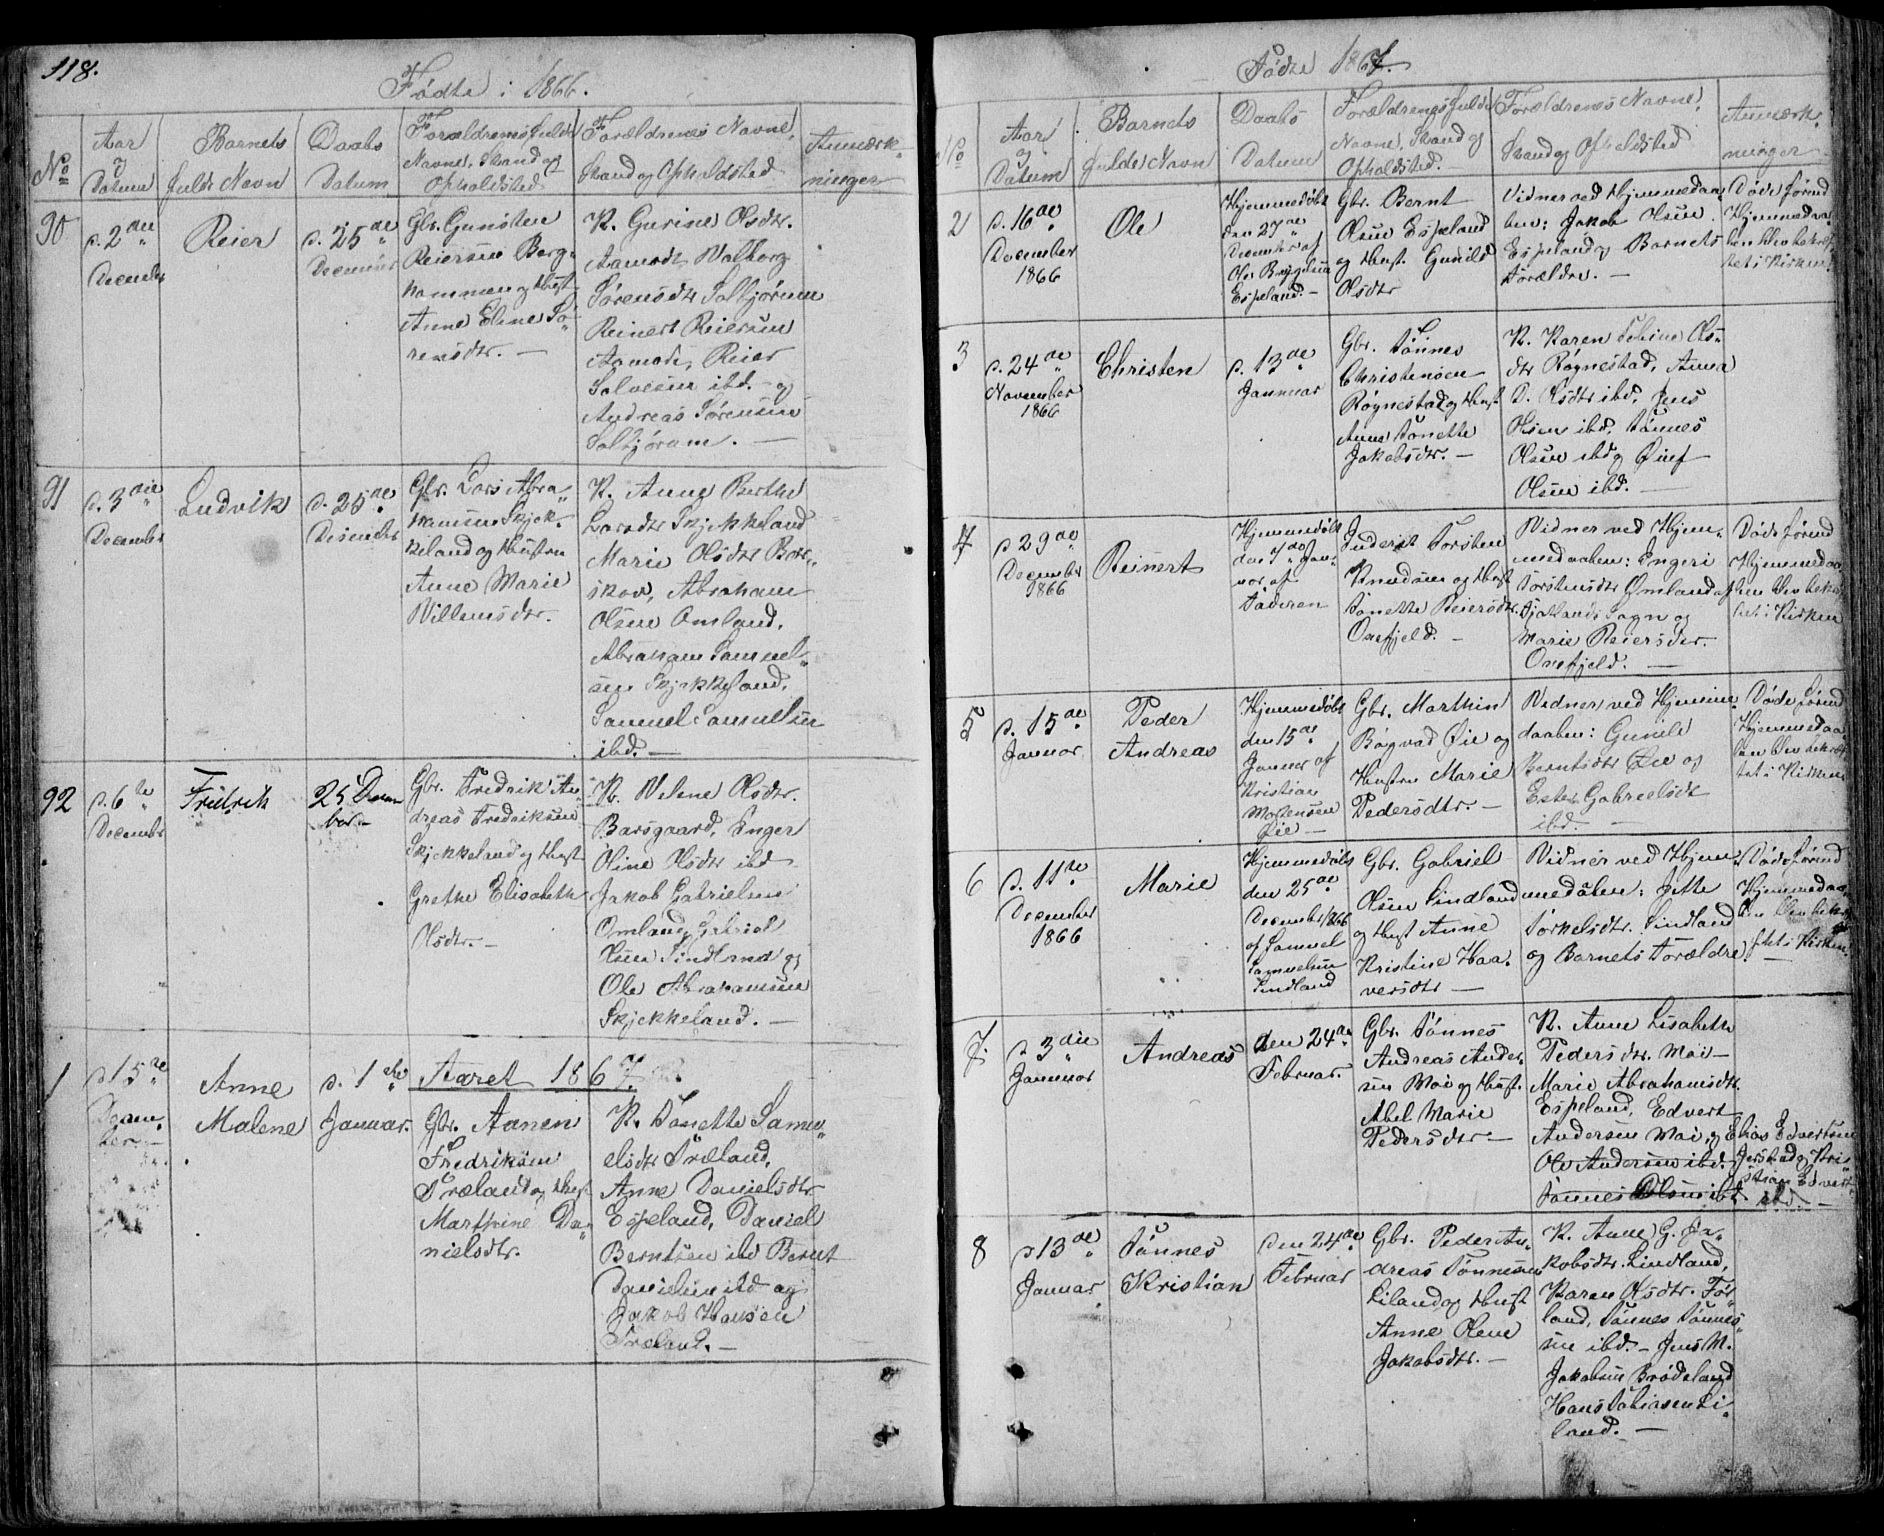 118.
Fødte i 1866.
No
Aar
og
Datum
Barnets
fulde Navn
Daabs
Datum
Forældrenes fulde
Navne, Stand og
Opholdsted
Forældrenes Navne,
Stand og Opholdsted
Anmærk-
ninger
90
d. 2den
December
Reier
d. 25de
December
Gbr. Gunsten
Reiersen Berg-
hammen og Hust
Anne Elene Sø-
rensdtr. —
K. Gurine Olsdtr.
Aamodt, Walborg
Sørensdtr Solbjørum
Reinert Reiersen
Aamodt, Reier
Salvesen ibd. og
Andreas Sørensen
Solbjøram. —
91
d. 3die
December
Ludvik
d. 25de
Desember
Gbr. Lars Abra-
hamsen Skjek-
keland og Hustru
Anne Marie
Villumsdtr.
K. Anne Berthe
Larsdtr Skjekkeland
Marie Olsdtr Bor-
skov, Abraham
Olsen Omland,
Abraham Samuel-
sen Skjekkeland,
Samuel Samuelsen
ibd. —
92
d. 6te
December
Fredrik
25 Decem
ber —
Gbr. Fredrik An-
dreas Fredriksen
Skjekkeland og Hust
Grethe Elisabeth
Olsdtr. —
K. Velene Olsdtr.
Barsgaard, Inger
Oline Olsdtr ibd
Jakob Gabrielsen
Omland, Gabriel
Olsen Lindland og
Ole Abrahamsen
Skjekkeland. —
Aaret 1867.
1
d. 15de
Decem-
ber —
Anne
Malene
d. 1ste
Januar.
Gbr. Aanen
Fredriksen
Træland og Hust
Marthine Da-
nielsdtr.
K. Tonette Samu-
elsdtr Træland,
Anne Danielsdtr
Espeland, Daniel
Berntsen ibd Bernt
Danielsen ibd og
Jakob Hansen
Træland. —
Fødte 1867.
No
Aar
og
Datum
Barnets
fulde Navn
Daabs
Datum
Forældrenes fulde
Navne, Stand og
Opholdsted.
Forældrenes Navne,
Stand og Opholdsted
Anmærk-
ninger
2
d. 16de
December
1866
Ole
Hjemmedøbt
den 27de
December af
Ole Brygelsen
Espeland. —
Gbr. Bernt
Olsen Espeland
og Hust. Gunild
Olsdtr
Vidner ved Hjemmedaa-
ben: Jakob Olsen
Espeland og Barnets
Forældre. —
Døde førend
Hjemmedaa-
ben blev bekræf-
tet i Kirken.
3
d. 24de
November
1866
Christen
d. 13de
Januar
Gbr. Tønnes
Christensen
Røgnestad og Hust
Anne Tonette
Jakobsdtr. —
K. Karen Tobine Ols-
dtr Røgnestad, Anna
D. Olsdtr ibd, Jens
Olsen ibd, Tønnes
Olsen ibd og
Olsen ibd. —
4
d 29de
December
1866
Reinert
Hjemmedøbt
den 7de Jan-
uar af
Faderen
Inderst Torsten
Knudsen og Hust
Tonette Reiersdtr.
Orrefjeld. —
Vidner ved Hjem-
medaaben: Ingeri
Torstensdtr Ømland af
Fjotlands Sogn og
Marie Reiersdtr.
Orrefjeld. —
Døde førend
Hjemmedaa-
ben blev bekræf-
tet i Kirken
5
d. 15de
Januar
Peder
Andreas
Hjemmedøbt
den 15de
Januar af
Kristian
Mortensen
Øie —
Gbr. Marthin
Bøgvad Øie og
Hustru Marie
Pedersdtr. —
Vidner ved Hjemme
daaben: Gunild
Berntsdtr Øie og
Ester Gabrielsdtr
ibd. —
Døde førend
Hjemmedaa-
ben blev bekræf-
tet i Kirken
6
d. 11te
December
1866
Marie
Hjemmedøbt
den 25de
December 1866
af Samuel
Samuelsen
Lindland
Gbr. Gabriel
Olsen Lindland
og Hust Anne
Kristine Haa-
versdtr —
Vidner ved Hjem-
medåben: Jette
Torkelsdtr. Lindland
og Barnets Forældre
Døde førend
Hjemmedaa-
ben blev bekræ
ftet i Kirken.
7.
d 3die
Januar
Andreas
den 24de
Februar.
Gbr. Tønnes
Andreas Ander-
sen Moi og Hust.
Abel Marie
Pedersdtr —
K. Anne Lisabeth
Pedersdtr. Moi —
Marie Abrahamsdtr.
Espeland, Edvert
Andersen Moi, og Elias Edvertsen
Ole Andersen ibd. Jerstad og Kris-
Tønnes Olsen ibd. tian Edvert-
ibd. —
8
d 13de
Januar
Tønnes
Kristian
den 24de
Februar
Gbr. Peder An-
dreas Tønnesen
Liland og Hust
Anne Olene
Jakobsdtr. —
K. Anne G. Ja-
kobsdtr. Lindland,
Karen Olsdtr. Før-
land, Tønnes Tønnes-
sen ibd. — Jens M.
Jakobsen Brødeland
Hans Tobiasen Li-
land. —